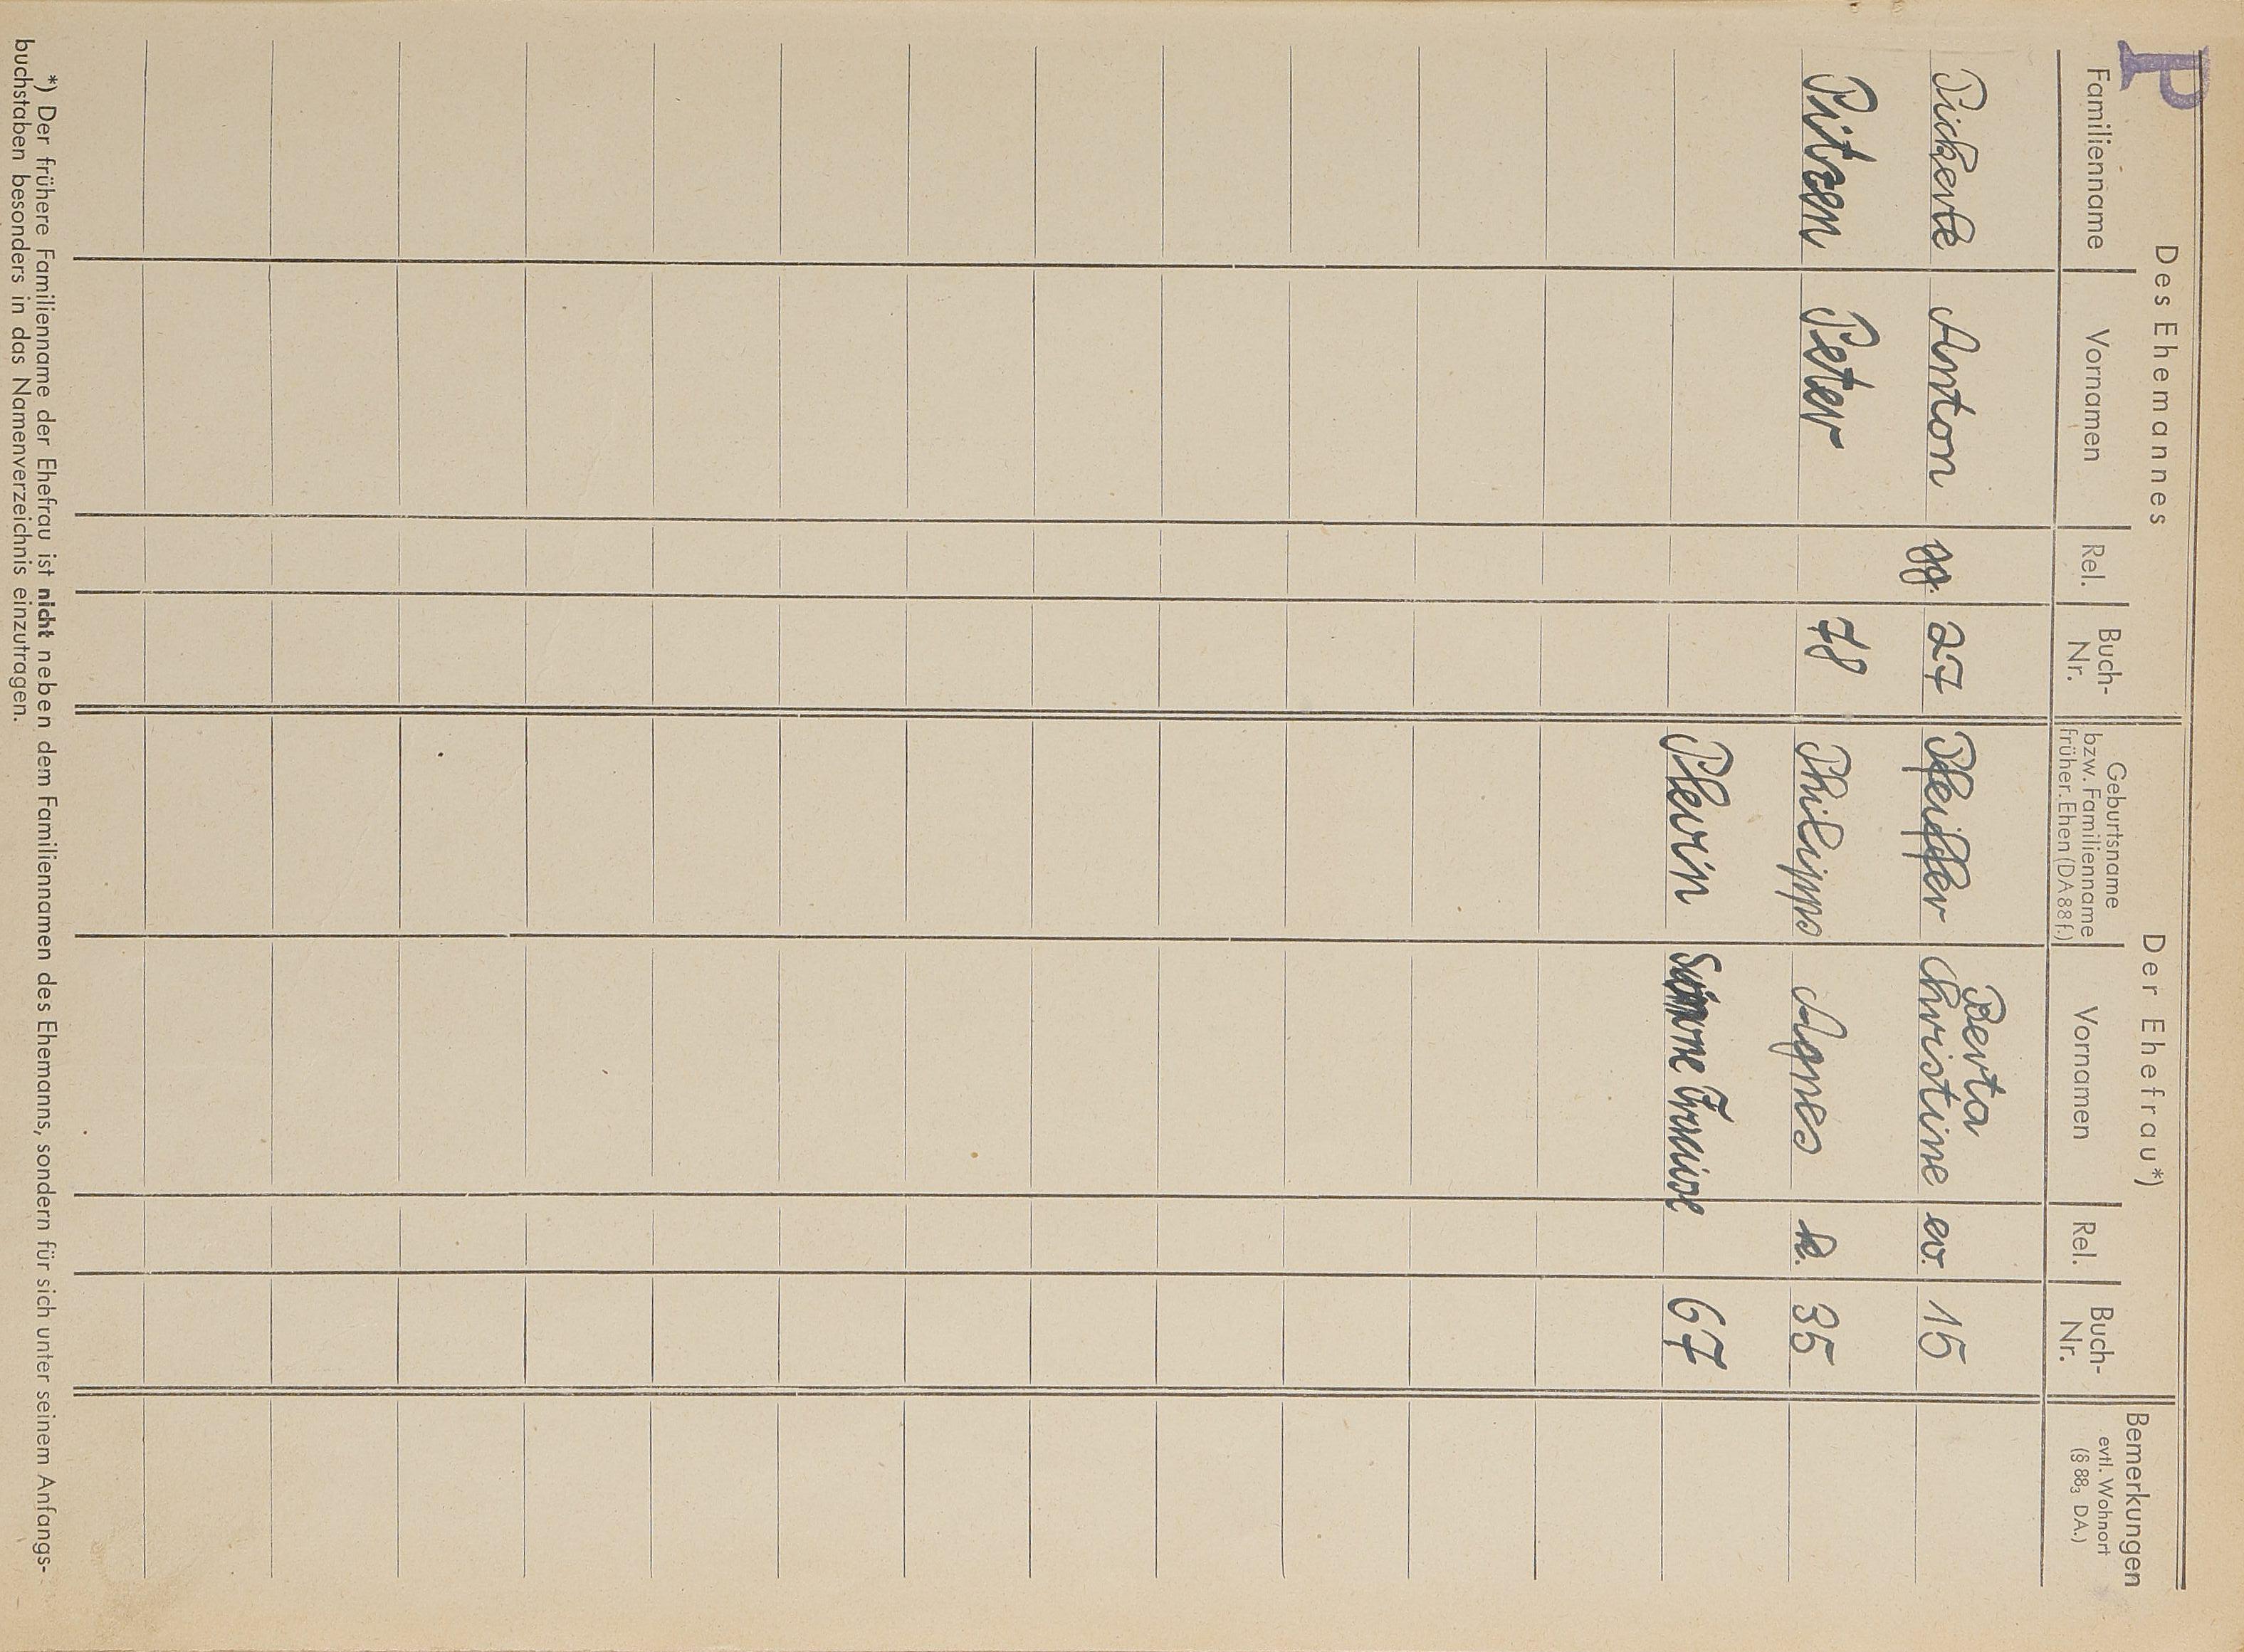 P
Des Ehemannes
Der Ehefrau*)
Bemerkungen
evtl. Wohnort
(§ 88₃ DA.)
Familienname
Vornamen
Rel.
Buch-
Nr.
Geburtsname
bzw. Familienname
früher. Ehen (DA 88 f.)
Vornamen
Rel.
Buch-
Nr.
Anton 27 Pfeiffer Berta
Christine ev. 15
Peter 78 Philipps Agnes k. 35
Plevin 67
*) Der frühere Familienname der Ehefrau ist nicht neben dem Familiennamen des Ehemanns, sondern für sich unter seinem Anfangs-
buchstaben besonders in das Namenverzeichnis einzutragen.